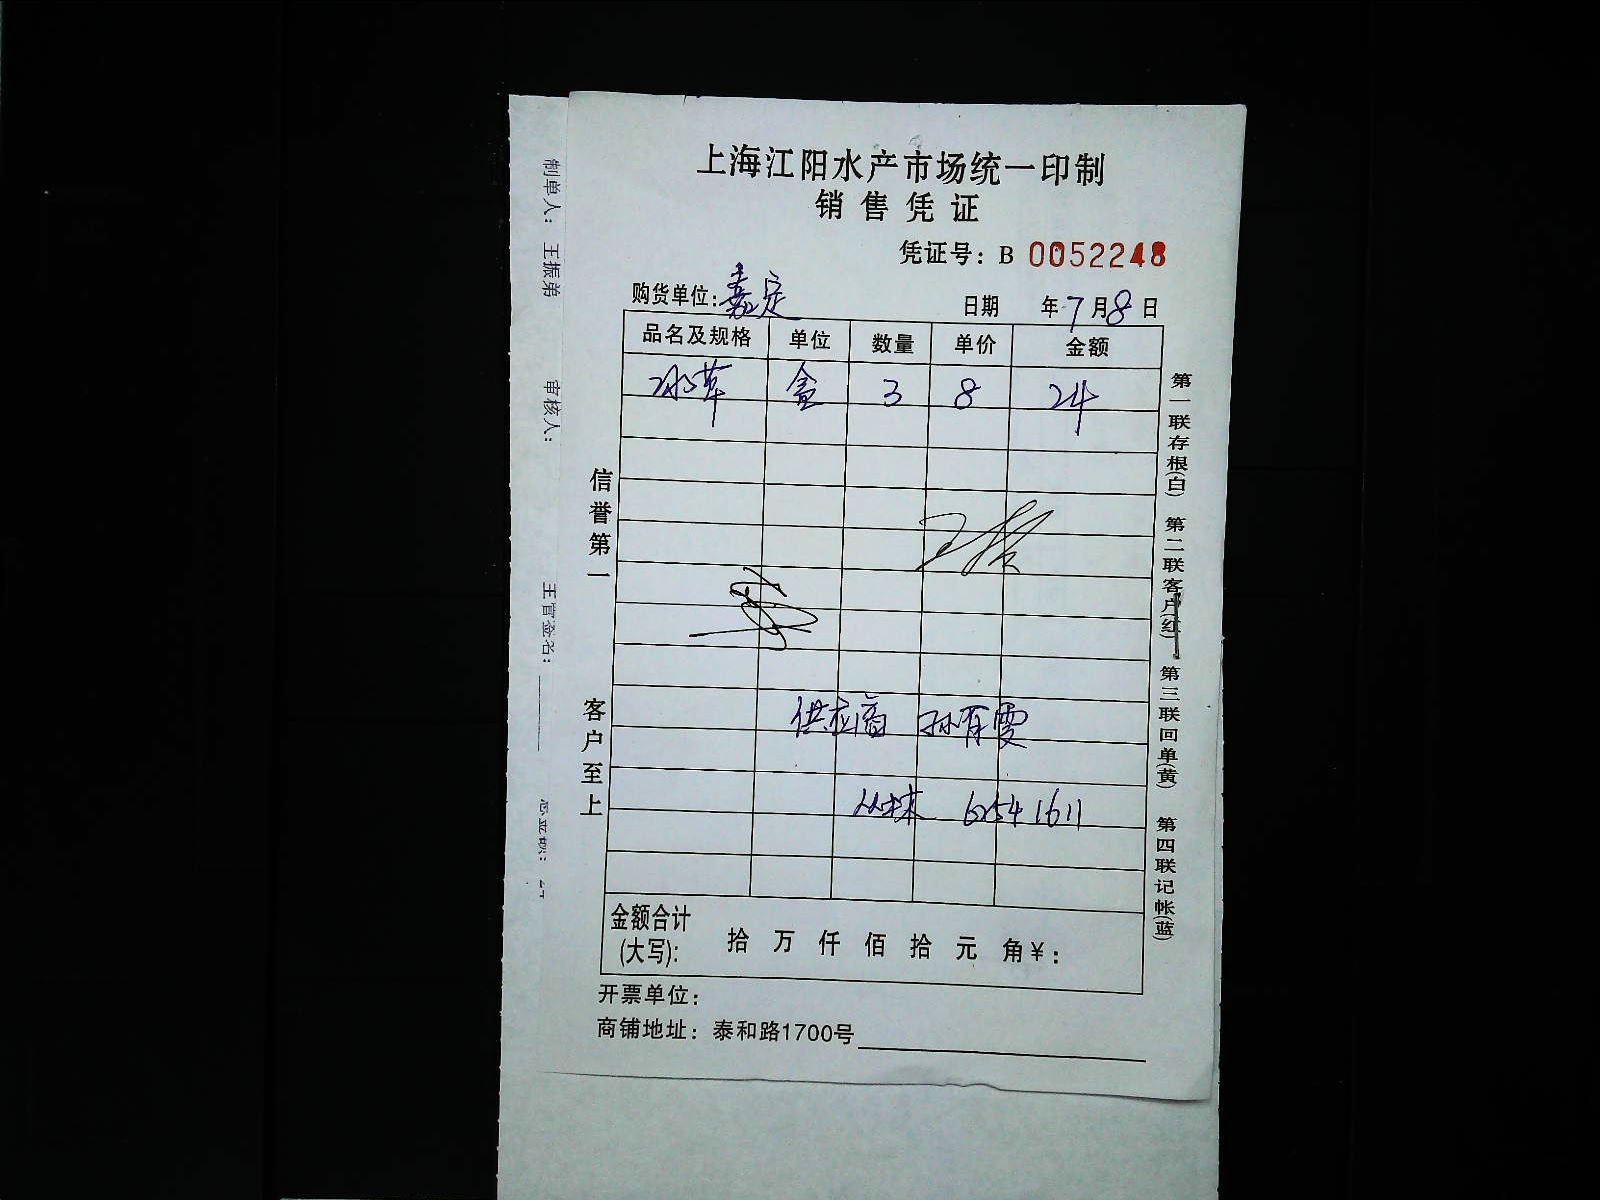 上海江阳水产市场统一印制
销售凭证
凭证号：B 0052248
购货单位：嘉定 日期 年7月8日
品名及规格 单位 数量 单价 金额
冰草 盒 3 8 24
供应商 孙有雯
丛林 6254 1611
金额合计
(大写)： 拾 万 仟 佰 拾 元 角￥：
开票单位：
商铺地址：泰和路1700号
信誉第一
客户至上
第一联存根(白) 第二联客户(红) 第三联回单(黄) 第四联记帐(蓝)
制单人：王振弟
审核人：
签名：